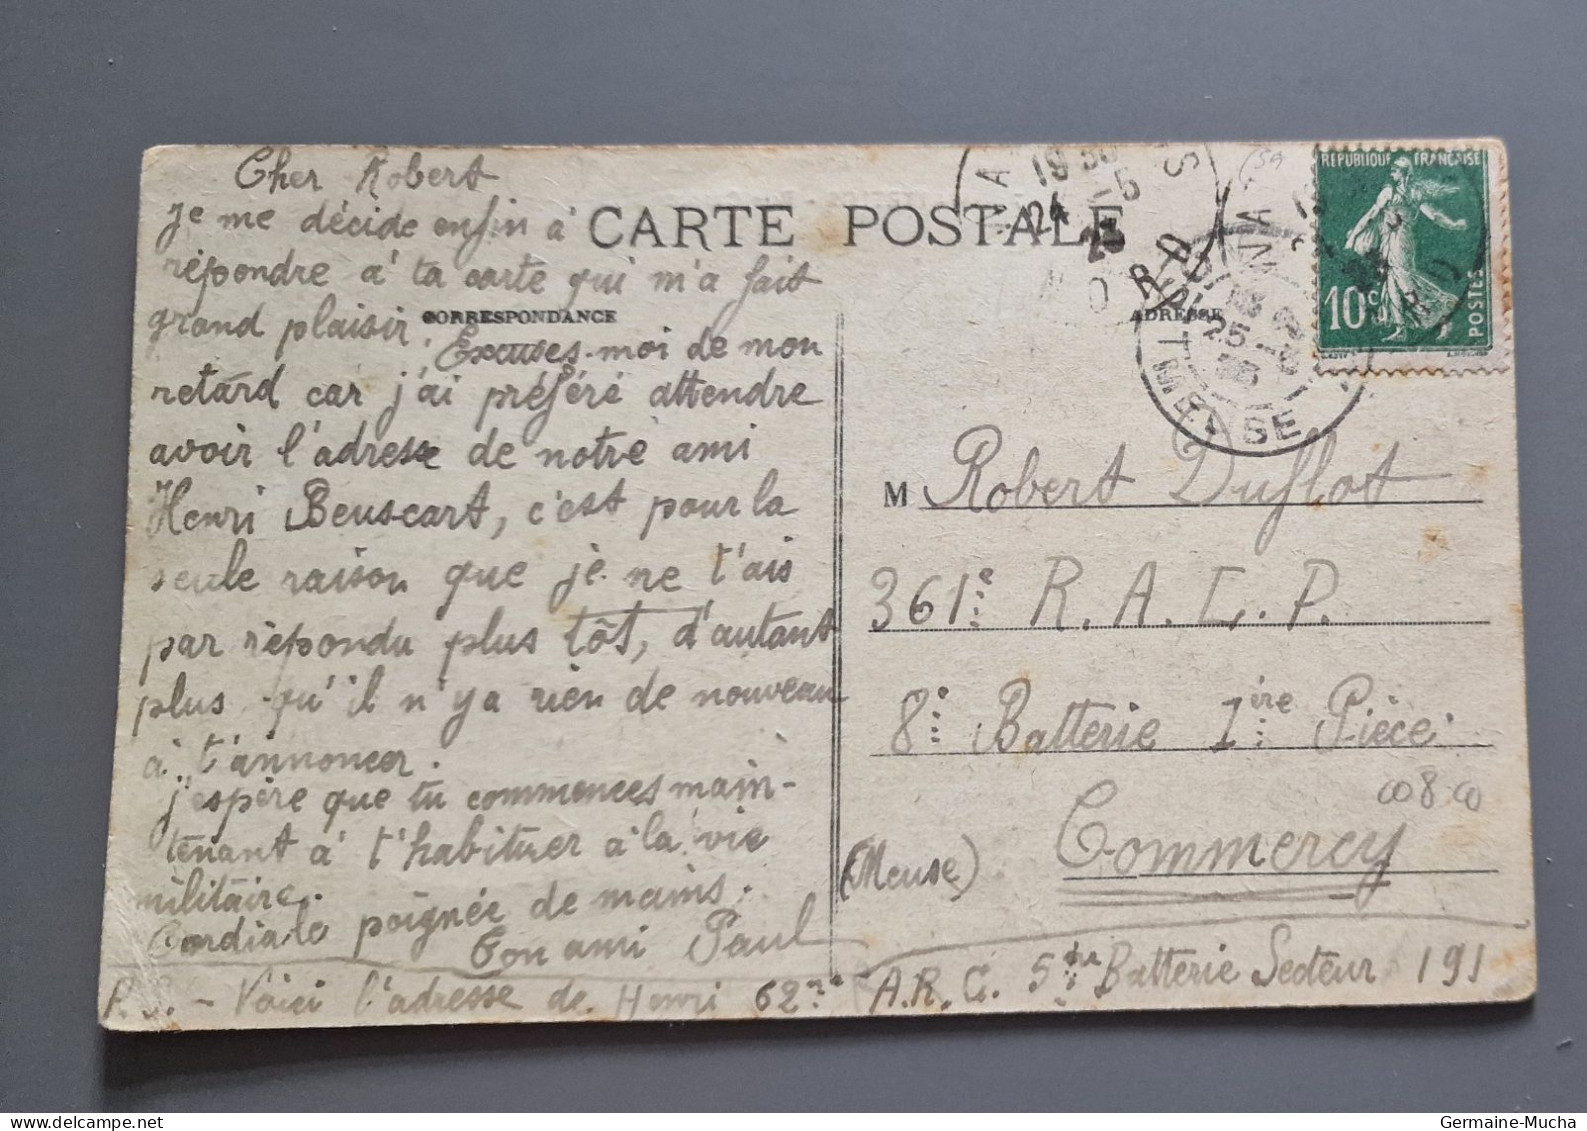 Cher Robert
Je me décide enfin à
répondre à ta carte qui m'a fait
grand plaisir. Excuses-moi de mon
retard car j'ai préféré attendre
avoir l'adresse de notre ami
Henri Beuscart, c'est pour la
seule raison que je ne t'ais
par répondu plus tôt, d'autant
plus qu'il n'ya rien de nouveau
à t'annoncer.
j'espère que tu commences main-
tenant à t'habituer à la vie
militaire.
Cordiale poignée de mains.
Ton ami Paul
P.S. - Voici l'adresse de Henri 62me A.R.C. 5 Batterie Secteur 191
CARTE POSTALE
CORRESPONDANCE
ADRESSE
REPUBLIQUE FRANÇAISE
10c
POSTES
19 30
24 -5
25
MEUSE
M Robert Duflot
361e R.A.L.P.
8e Batterie 1ère Pièce
Commercy
(Meuse)
Germaine-Mucha